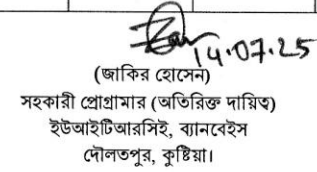 14.07.25
(জাকির হোসেন)
সহকারী প্রোগ্রামার (অতিরিক্ত দায়িত্ব)
ইউআইটিআরসিই, ব্যানবেইস
দৌলতপুর, কুষ্টিয়া।